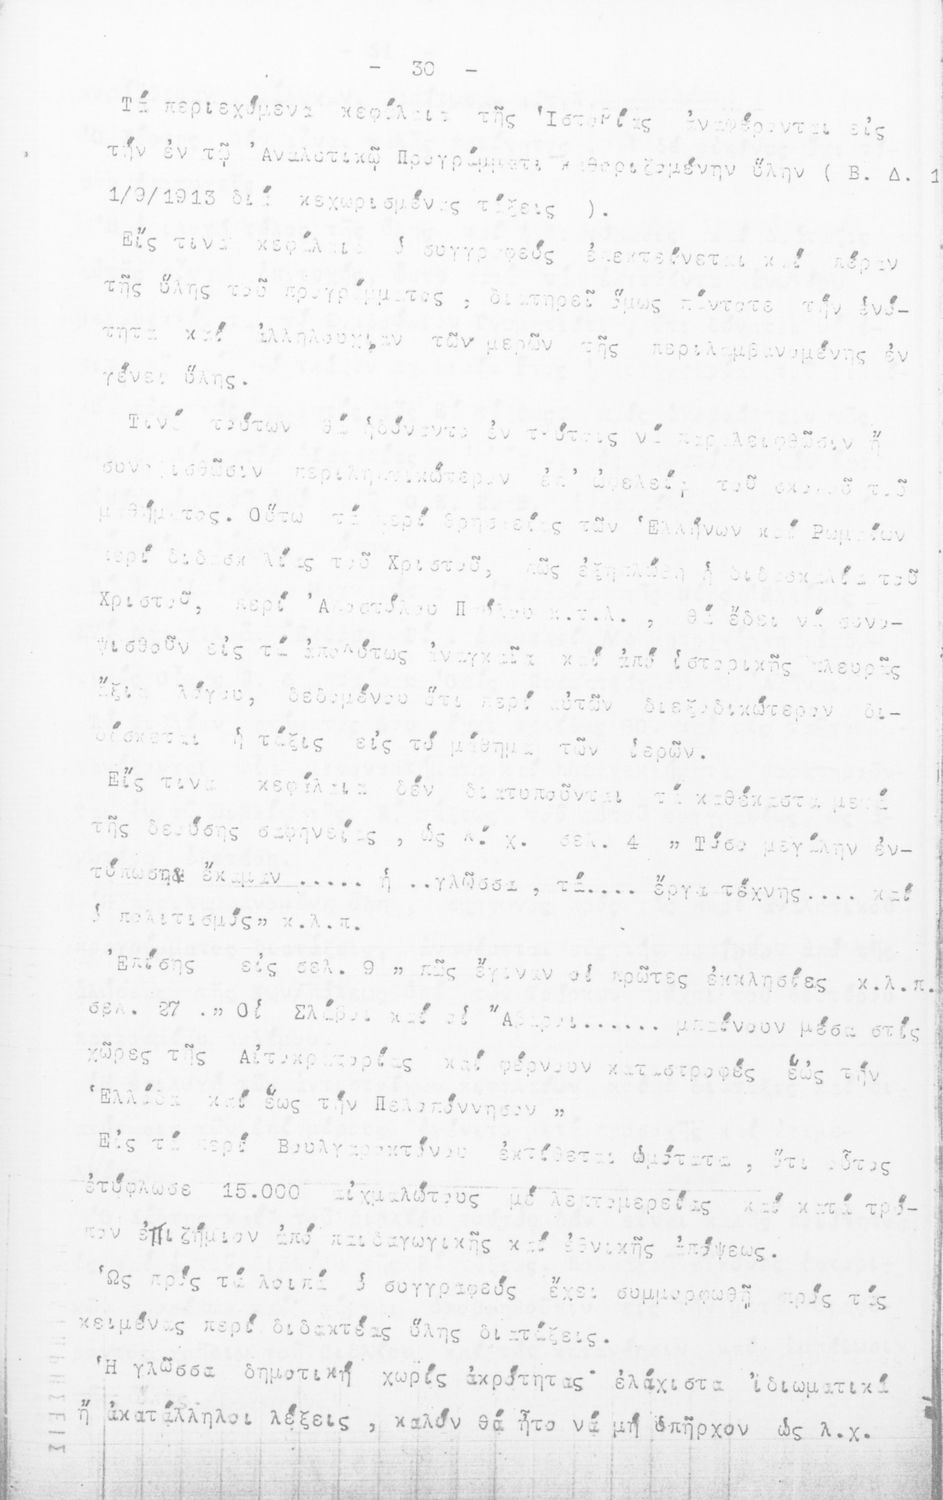 - 30 -
Τά περιεχόμενα κεφάλαια τῆς Ἱστορίας ἀναφέρονται εἰς
τήν ἐν τῷ Ἀναλυτικῷ Προγράμματι καθοριζομένην ὕλην ( Β. Δ. 1
1/9/1913 διά κεχωρισμένας τάξεις ).
Εἴς τινα κεφάλαια ὁ συγγραφεύς ἐπεκτείνεται καί πέραν
τῆς ὕλης τοῦ προγράμματος , διατηρεῖ ὅμως πάντοτε τήν ἑνό-
τητα καί ἀλληλουχίαν τῶν μερῶν τῆς περιλαμβανομένης ἐν
γένει ὕλης.
Τινά τούτων θά ἠδύναντο ἐν τούτοις νά παραλειφθῶσιν ἤ
συνοψισθῶσιν περιληπτικώτερον ἐπ' ὠφελείᾳ τοῦ σκοποῦ τοῦ
μαθήματος. Οὕτω τά περί θρησκείας τῶν Ἑλλήνων καί Ρωμαίων
περί διδασκαλίας τοῦ Χριστοῦ, πῶς ἐξηπλώθη ἡ διδασκαλία τοῦ
Χριστοῦ, περί Ἀποστόλου Παύλου κ.τ.λ. , θά ἔδει νά συνο-
ψισθοῦν εἰς τά ἀπολύτως ἀναγκαῖα καί ἀπό ἱστορικῆς πλευρᾶς
ἄξια λόγου, δεδομένου ὅτι περί αὐτῶν διεξοδικώτερον δι-
δάσκεται ἡ τάξις εἰς τό μάθημα τῶν ἱερῶν.
Εἴς τινα κεφάλαια δέν διατυποῦνται τά καθέκαστα μετά
τῆς δεούσης σαφηνείας , ὡς λ. χ. σελ. 4 " Τόσο μεγάλην ἐν-
τύπωση ἔκαμαν ..... ἡ ..γλῶσσα , τά.... ἔργα τέχνης.... καί
ὁ πολιτισμός" κ.λ.π.
Ἐπίσης εἰς σελ. 9 " πῶς ἔγιναν οἱ πρῶτες ἐκκλησίες κ.λ.π.
σελ. 27 ." Οἱ Σλάβοι καί οἱ Ἄβαροι...... μπαίνουν μέσα στίς
χῶρες τῆς Αὐτοκρατορίας καί φέρνουν καταστροφές ἕως τήν
Ἑλλάδα καί ἕως τήν Πελοπόννησον "
Εἰς τό περί Βουλγαροκτόνου ἐκτίθεται ὠμότατα , ὅτι οὗτος
ἐτύφλωσε 15.000 αἰχμαλώτους μέ λεπτομερείας καί κατά τρό-
πον ἐπιζήμιον ἀπό παιδαγωγικῆς καί ἐθνικῆς ἀπόψεως.
Ὡς πρός τά λοιπά ὁ συγγραφεύς ἔχει συμμορφωθῆ πρός τάς
κειμένας περί διδακτέας ὕλης διατάξεις.
Ἡ γλῶσσα δημοτική χωρίς ἀκρότητας· ἐλάχιστα ἰδιωματικά
ἤ ἀκατάλληλοι λέξεις , καλόν θά ἦτο νά μή ὑπῆρχον ὡς λ.χ.